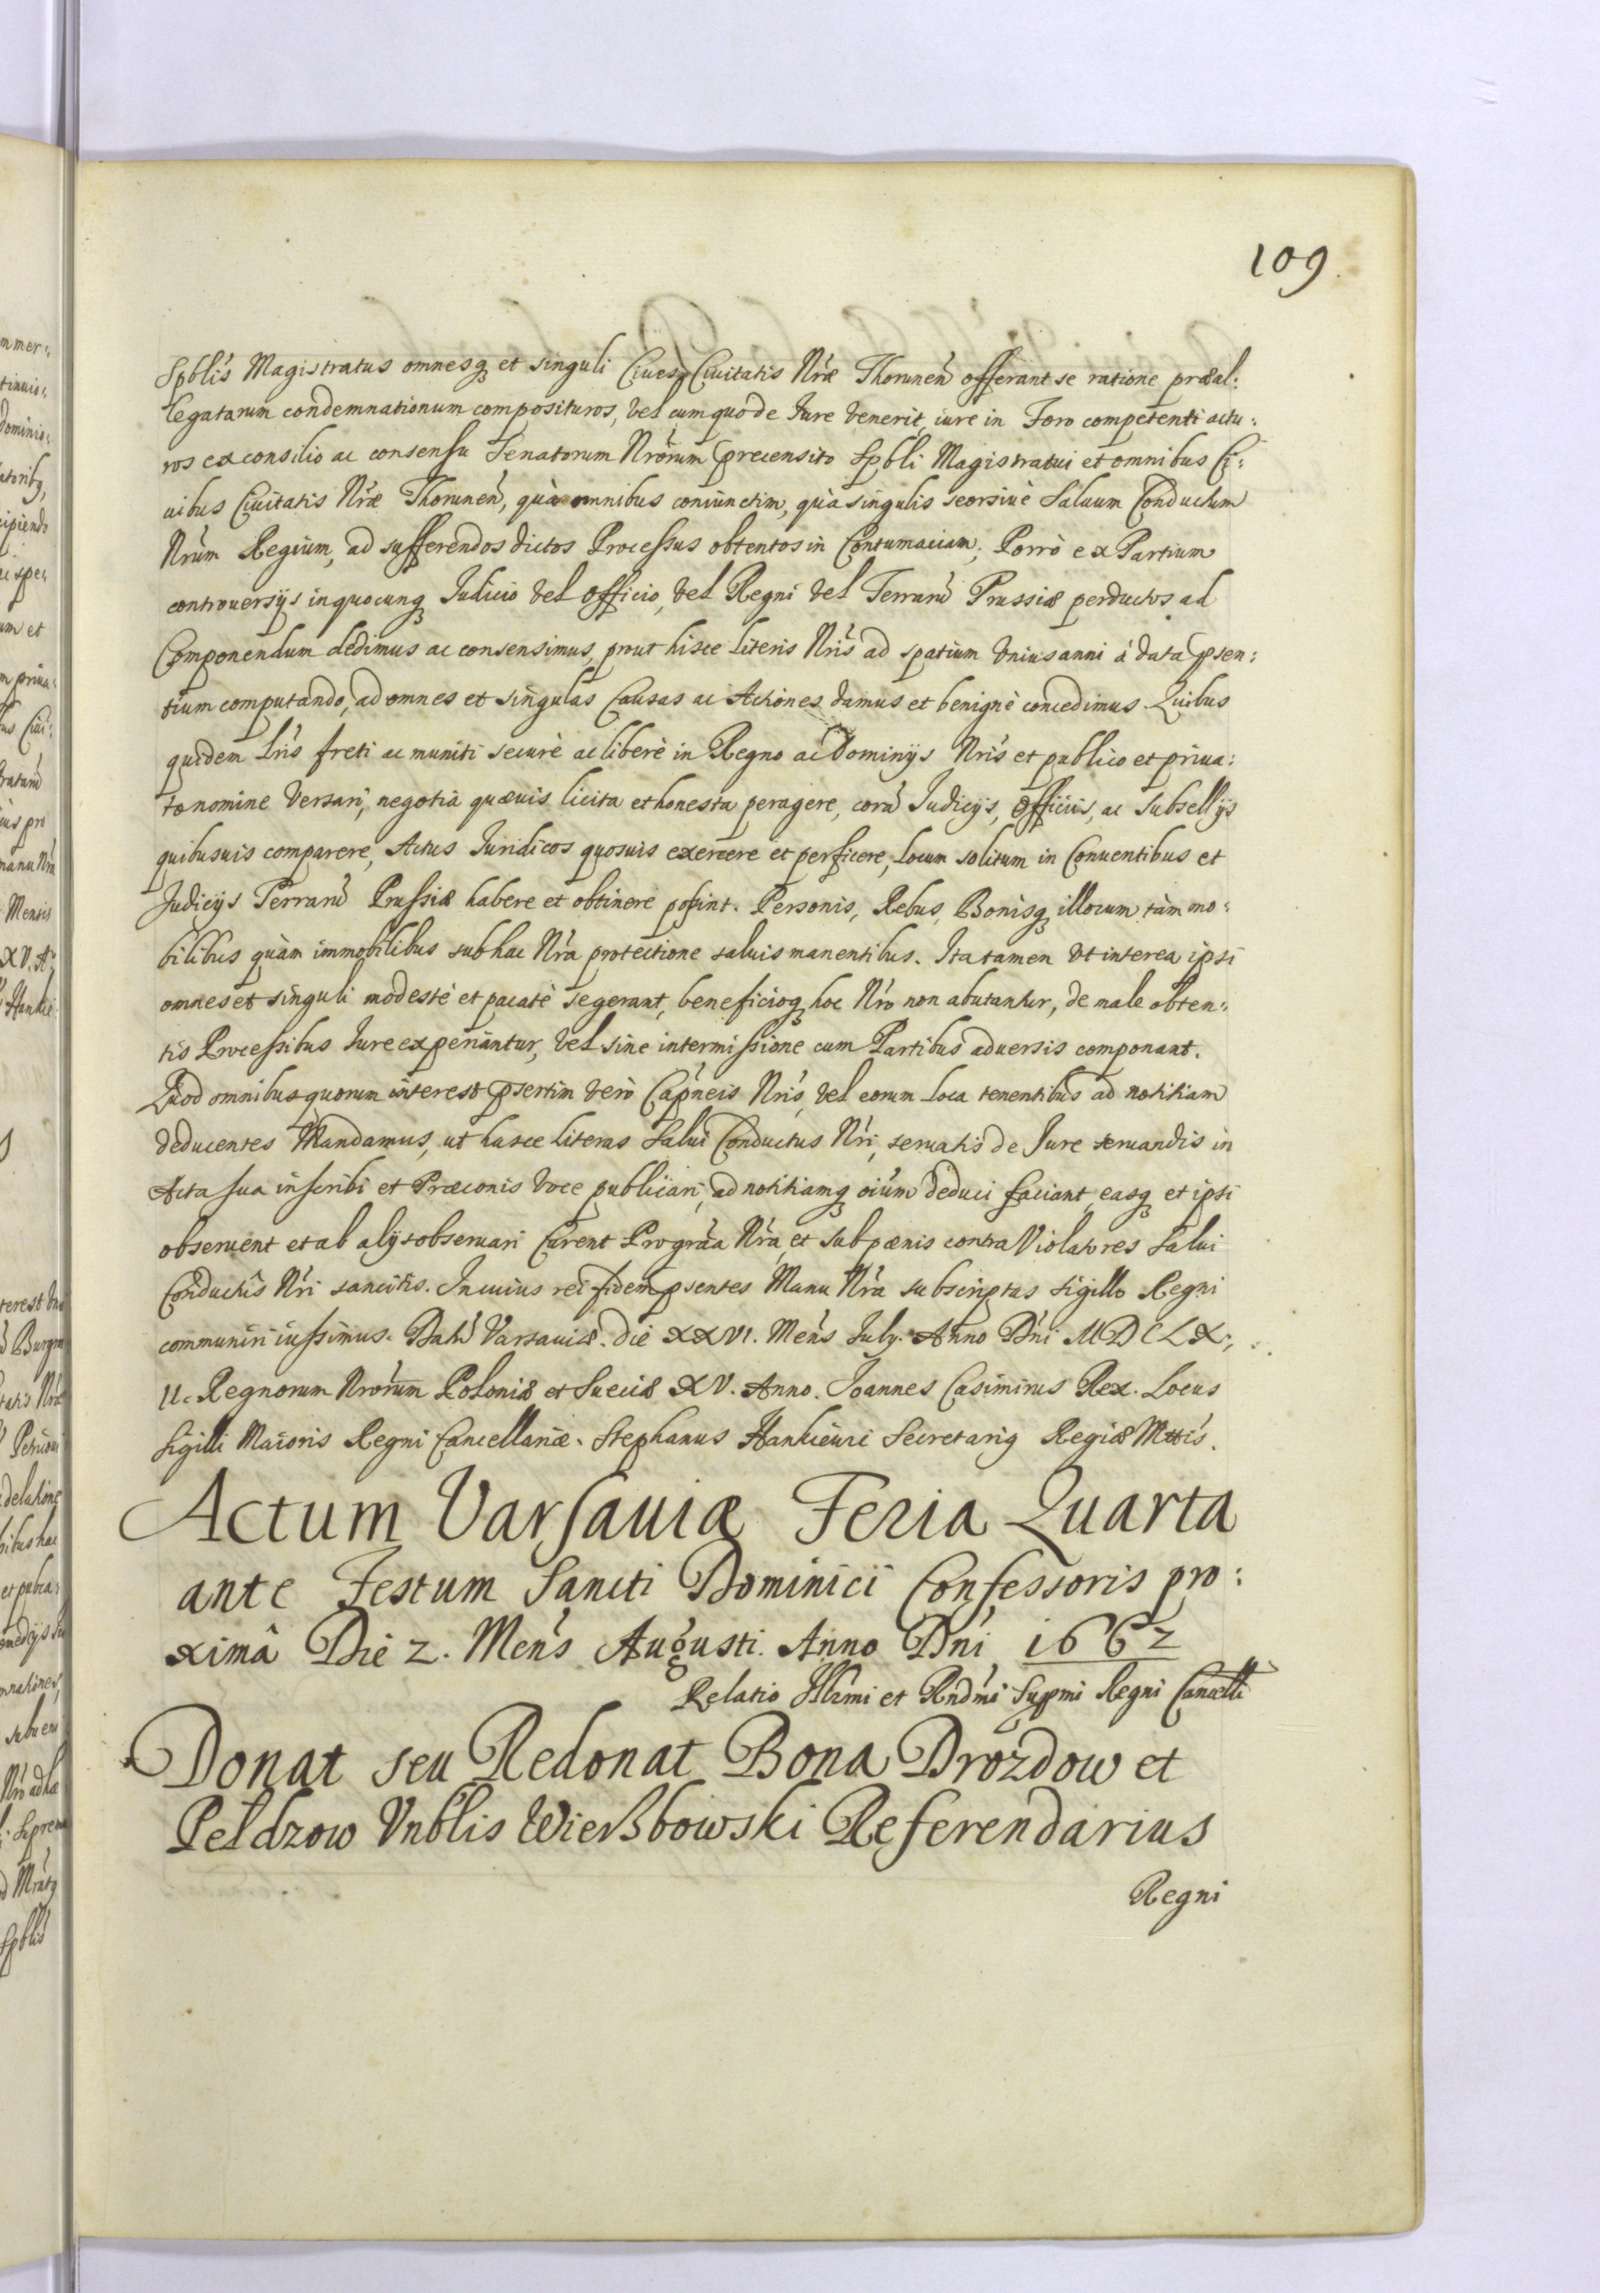 109
Spblis Magistratus omnesq et singuli Ciuesq Ciuitatis Nrae Thorunen offerant se ratione praeal:
legatarum condemnationum composituros, vel cum quo de Iure venerit, iure in Foro competenti actu:
ros ex consilio ac consensu Senatorum Nrorum precensito Spbli Magistratui et omnibus Ci:
uibus Ciuitatis Nrae Thorunen, quà omnibus coniunctim, quà singulis seorsiuè Saluum Conductum
Nrum Regium, ad sufferendos dictos Processus obtentos in Contumaciam, Porrò ex Partium
controuersijs in quocunq Iudicio vel Officio, vel Regni vel Terraru Prussiae perductos ad
Componendum dedimus ac consensimus, prout hisce literis Nris ad spatium vnius anni à data psen:
tium computando, ad omnes et singulas Causas ac Actiones damus et benignè concedimus. Quibus
quidem Lris freti ac muniti securè ac liberè in Regno ac Dominijs Nris et publico et priua:
to nomine versari, negotia quaeuis licita et honesta peragere, corã Iudicijs, Officiis, ac Subsellijs
quibusuis comparere, Actus Iuridicos quosuis exercere et perficere, locum solitum in Conuentibus et
Iudicijs Terraru Prussiae habere et obtinere possint. Personis, Rebus, Bonisq illorum tàm mo:
bilibus quàm immobilibus sub hac Nra protectione saluis manentibus. Ita tamen vt interea ipsi
omnes et singuli modestè et pacatè se gerant, beneficioq hoc Nro non abutantur, de male obten:
tis Processibus Iure experiantur, vel sine intermissione cum Partibus aduersis componant.
Quod omnibus quorum interest psertim verò Capneis Nris, vel eorum loca tenentibus ad notitiam
deducentes Mandamus, ut hasce literas Salui Conductus Nri, seruatis de Iure seruandis in
Acta sua inscribi et Praeconis voce publicari, ad notitiamq oium deduci faciant, easq et ipsi
obseruent et ab alijs obseruari Curent Pro graa Nra, et sub paenis contra Violatores Salui
Conductus Nri sancitis. In cuius rei fidem psentes Manu Nra subscriptas Sigillo Regni
communiri iussimus. Datu Varsauiae. die XXVI. Mens July. Anno Dni MDCLX:
II. Regnorum Nrorum Poloniae et Sueciae XV. Anno. Ioannes Casimirus Rex. Locus
Sigilli Maioris Regni Cancellariae. Stephanus Hankieuic Secretarig Regiae Mttis.
Actum Varsauiae Feria Quarta
ante Festum Sancti Dominici Confessoris pro:
ximâ Die 2. Mens Augusti. Anno Dni 1662
Relatio Illrmi et Rndmi Supmi Regni Cancelli
Donat seu Redonat Bona Drozdow et
Peldzow Vnblis Wierßbowski Referendarius
Regni